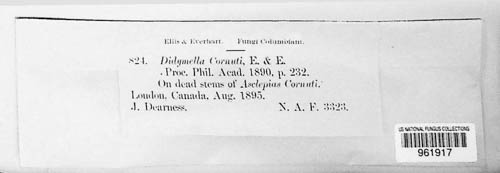 Ellis & Everhart. Fungi Columbiani.
824. Didymella Cornuti, E. & E.
Proc. Phil. Acad. 1890, p. 232.
On dead stems of Asclepias Cornuti.
London, Canada, Aug. 1895.
J. Dearness. N. A. F. 3323.
US NATIONAL FUNGUS COLLECTIONS
961917